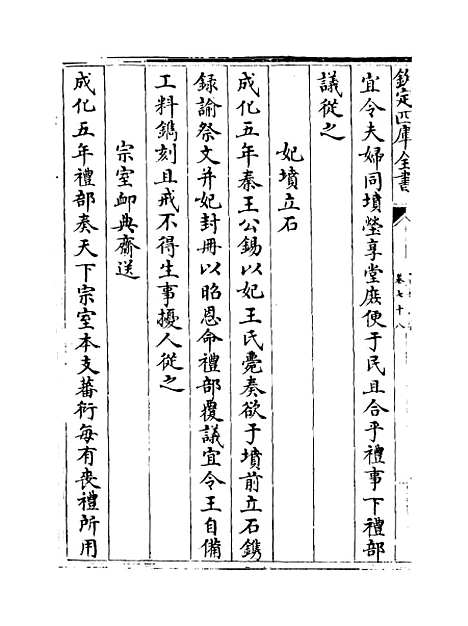 欽定四庫全書
卷七十八
宜令夫婦同墳塋享堂庶便于民且合乎禮事下禮部
議從之
妃墳立石
成化五年秦王公錫以妃王氏薨奏欲于墳前立石鐫
録諭祭文并妃封冊以昭恩命禮部覆議宜令王自備
工料鐫刻且戒不得生事擾人從之
宗室䘏典齋送
成化五年禮部奏天下宗室本支蕃衍每有喪禮所用